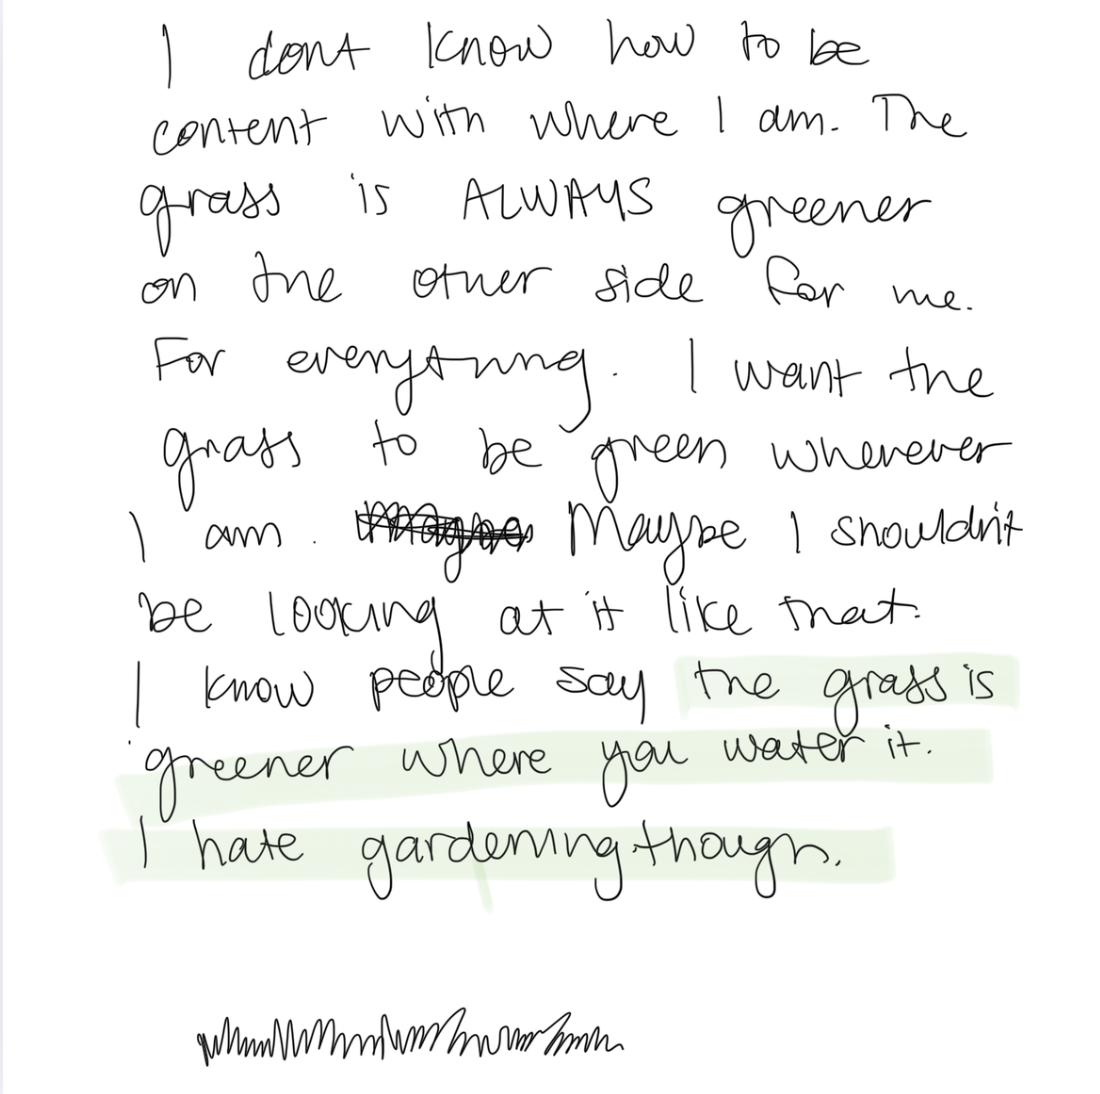 I dont know how to be
content with where I am. The
grass is ALWAYS greener
on the other side for me.
For everything. I want the
grass to be green wherever
I am. Maybe I shouldn't
be looking at it like that.
I know people say the grass is
greener where you water it.
I hate gardening though.